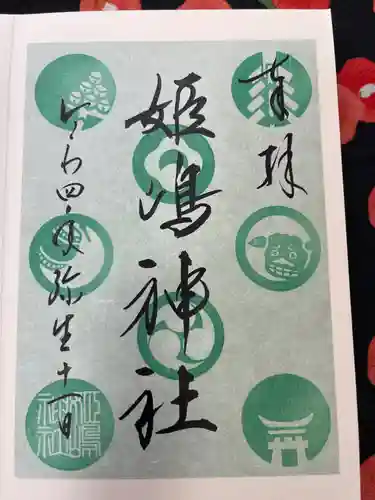 奉拝
姫嶋神社
令わ四年弥生十一日
姫嶋神社